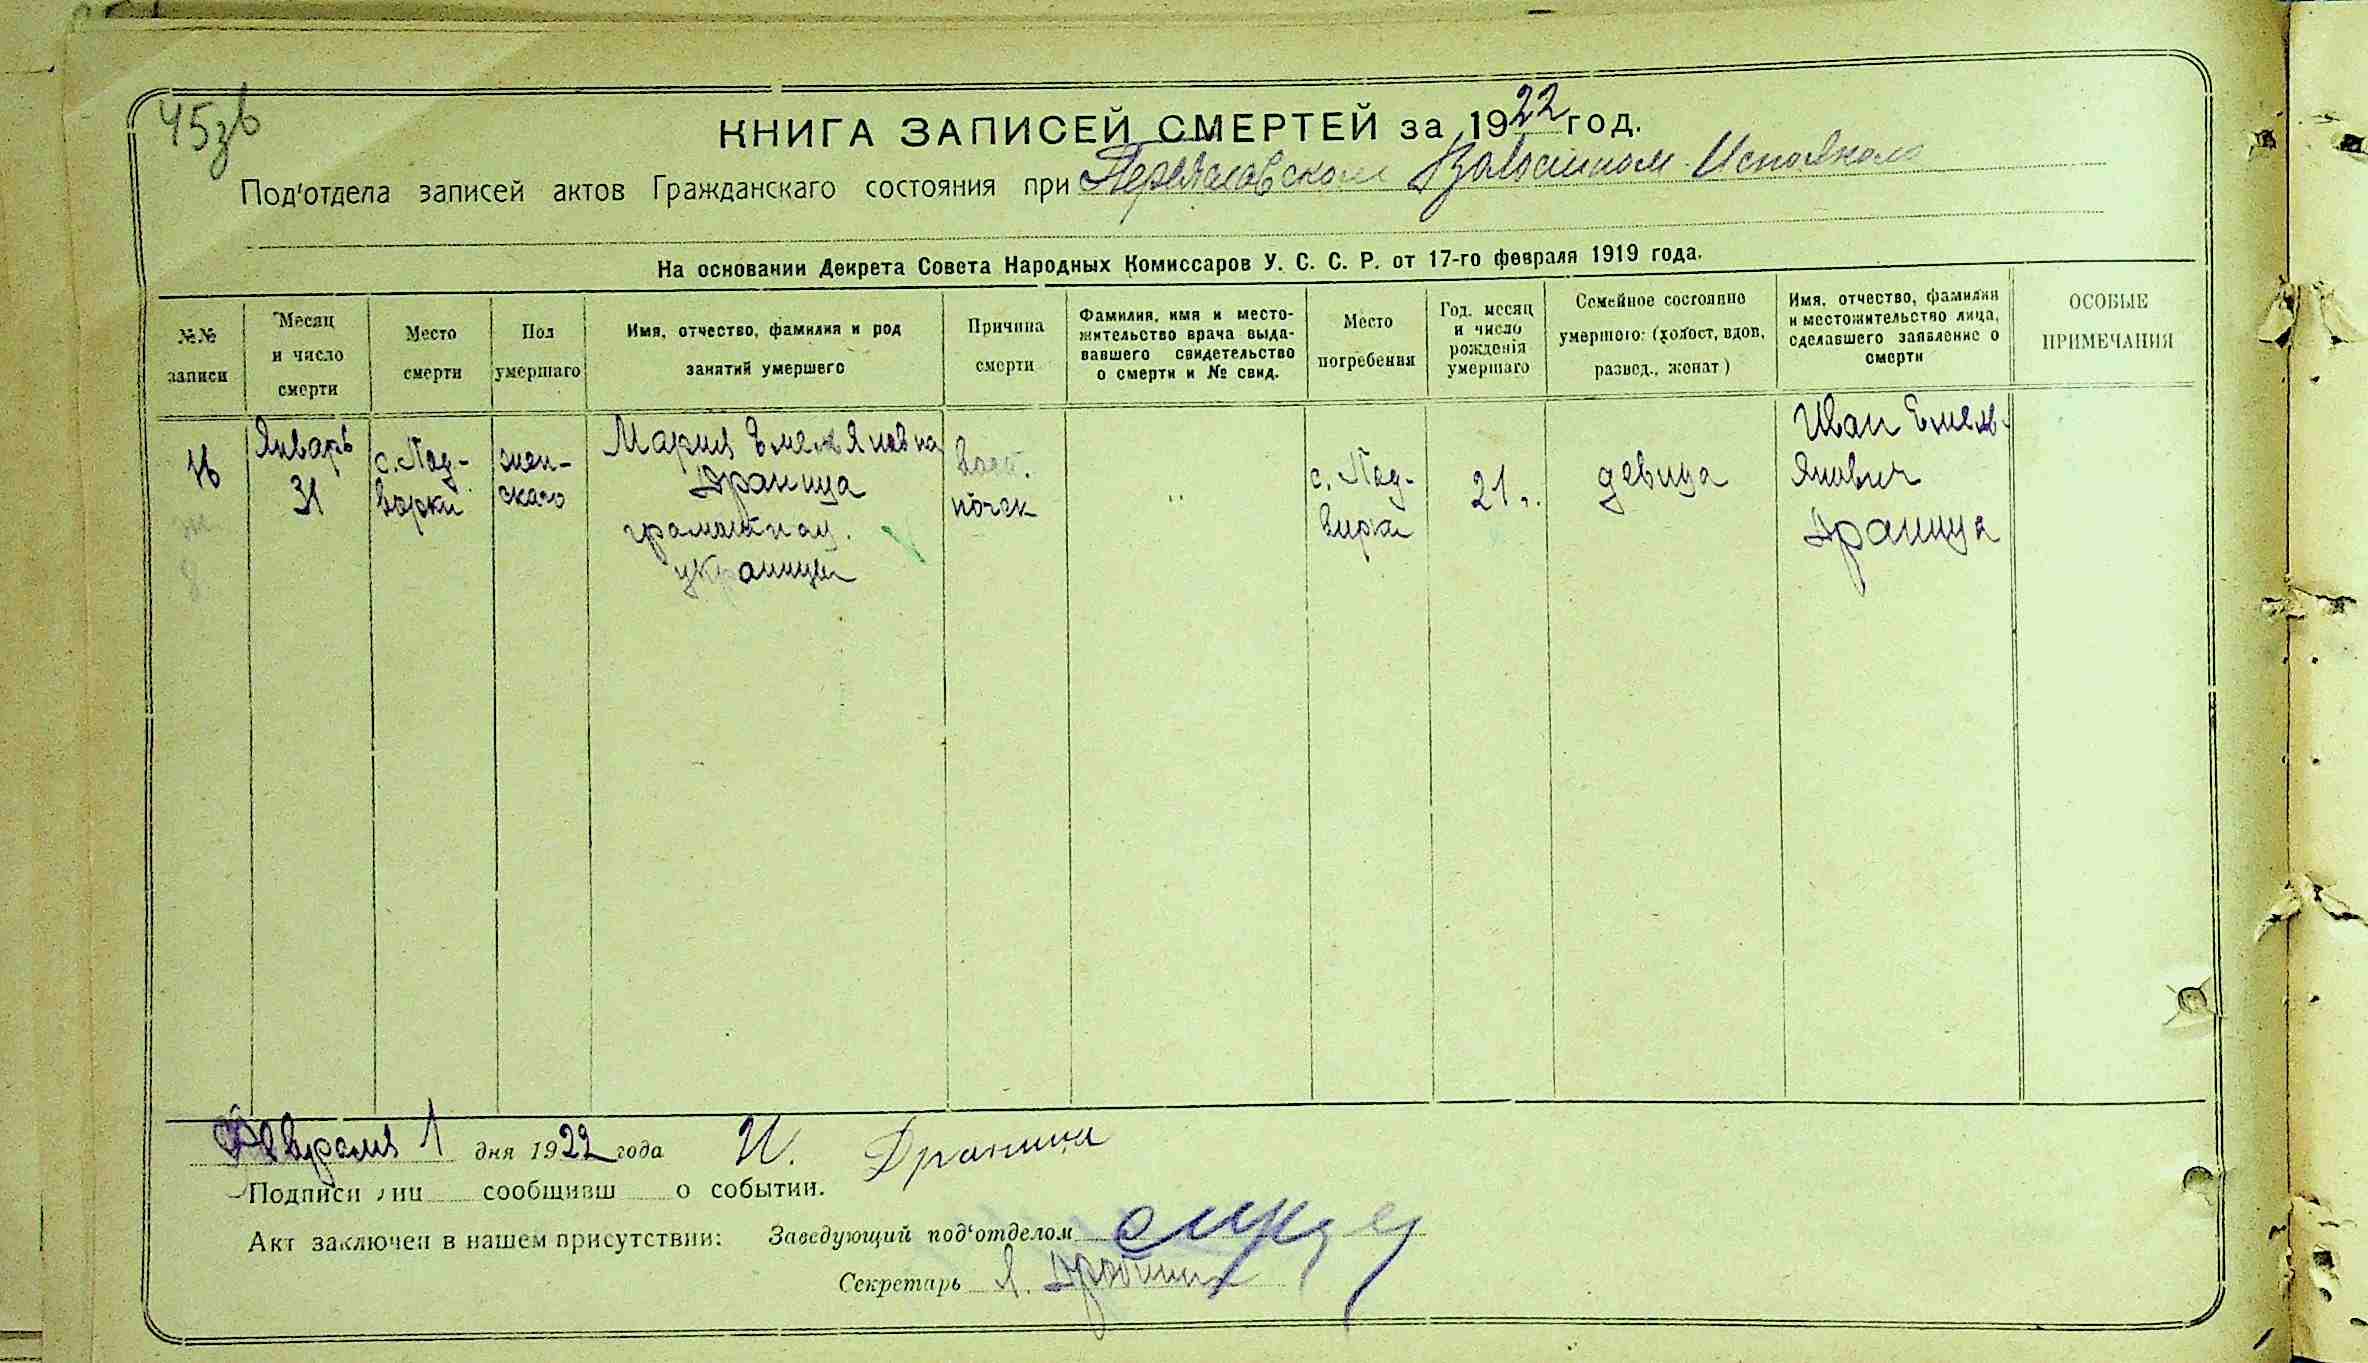 45зв
КНИГА ЗАПИСЕЙ СМЕРТЕЙ за 1922 год.
Под'отдела записей актов Гражданскаго состояния при Переяславском Волостном Исполкоме
На основании Декрета Совета Народных Комиссаров У. С. С. Р. от 17-го февраля 1919 года.
№№ записи
Месяц и число смерти
Место смерти
Пол умершаго
Имя, отчество, фамилия и род занятий умершего
Причина смерти
Фамилия, имя и место-
жительство врача выда-
вавшего свидетельство
о смерти и № свид.
Место погребения
Год, месяц
и число
рожденія
умершаго
Семейное состояние
умершого: (холост, вдов,
развед., женат)
Имя, отчество, фамилия
и местожительство лица,
сделавшего заявление о
смерти
ОСОБЫЕ
ПРИМЕЧАНИЯ
Январь
31
с. Под-
ворки
жен-
скаго
Мария Емельяновна
Драница
грамотная.
украинца
Восп.
почек
"
с. Под-
вирки
21 г.
девица
Иван Емель-
янович
Драница
Февраля 1 дня 1922 года
И. Драница
Подписи лиц сообщивш о событии.
Акт заключен в нашем присутствии: Заведующий под'отделом
Секретарь